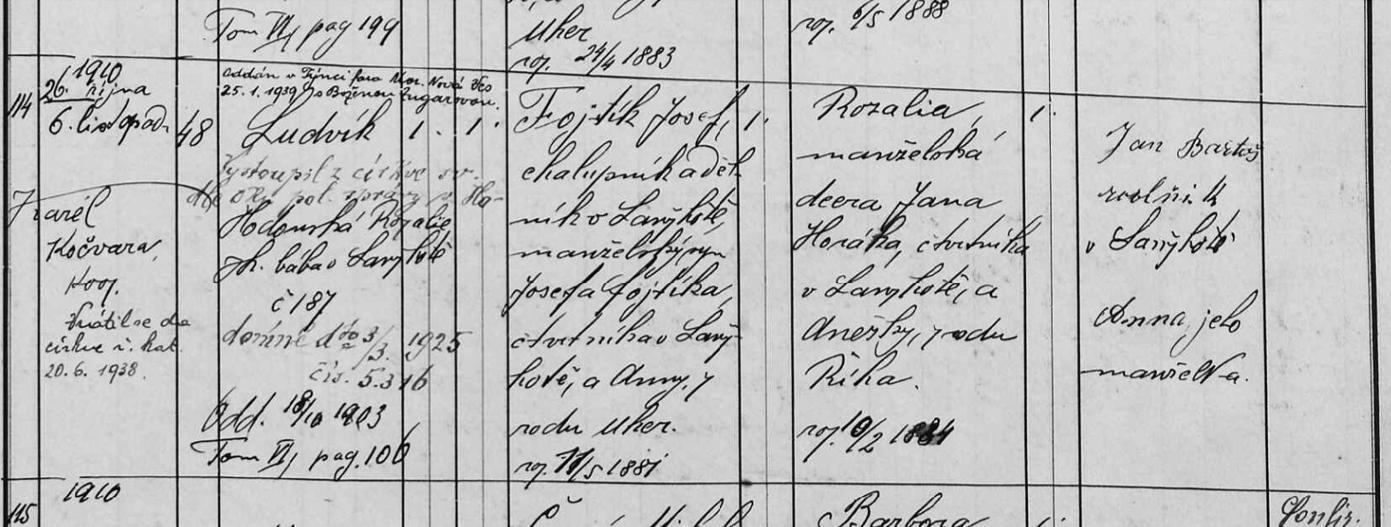 Tom VI, pag 199
Uher
roz. 24/4 1883
roz. 6/5 1888
114
1910
26. října
6. listopadu
48
Karel
Kočvara,
koop.
Vrátil se do
církve ř. kat.
20. 6. 1938.
oddán v Týnci fara Mor. Nová Ves
25. 1. 1939 s Boženou
Ludvík 1. 1.
Vystoupil z církve
ok. pol. zprávy z Ho-
Hodonská Rozalie
zk. bába v Lanžhotě
č 187
donína dto 3/3. 1925
čís. 5.316
Odd. 18/10 1903
Tom VI, pag. 106
Fojtík Josef, 1.
chalupník a děl-
ník v Lanžhotě,
manželský syn
Josefa Fojtíka,
čtvrtníka v Lanž-
hotě, a Anny, z
rodu Uher.
roz. 11/5 1881
Rozalia, 1.
manželská
dcera Jana
Horáka, čtvrtníka
v Lanžhotě, a
Anežky, z rodu
Říha.
roz. 10/2 1884
Jan Bartoš
rolník
v Lanžhotě
Anna, jeho
manželka.
115
1910
Barbora